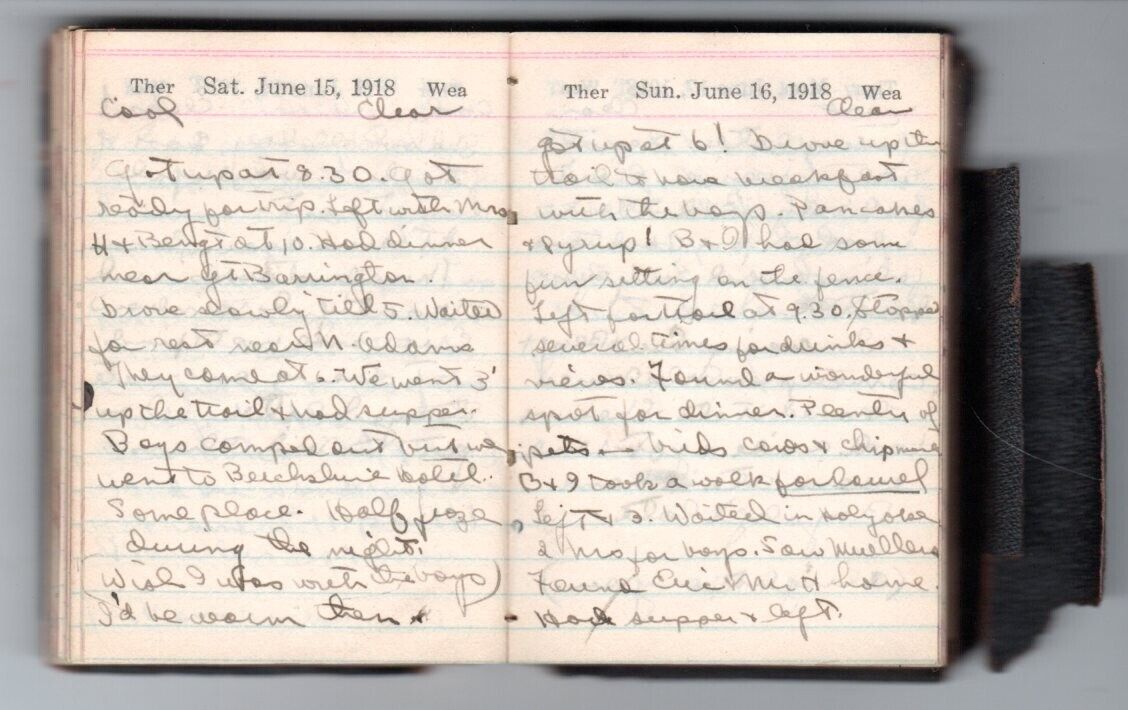 Ther Sat. June 15, 1918 Wea
Cool Clear
Got up at 8.30. Got
ready for trip. Left with Mrs
H & Bengt at 10. Had dinner
near Gt Barrington.
Drove slowly till 5. Waited
for rest near N. Adams
They came at 6. We went 3'
up the trail & had supper.
Boys camped out but we
went to Berkshire Hotel.
Some place. Half froze
during the night.
(Wish I was with the boys)
I'd be warm then
Ther Sun. June 16, 1918 Wea
Clear
Got up at 6! Drove up the
trail to have breakfast
with the boys. Pancakes
& syrup! B & I had some
fun sitting on the fence.
Left for trail at 9.30. Stopped
several times for drinks &
views. Found a wonderful
spot for dinner. Plenty of
pets - birds cows & chipmunks
B & I took a walk for laurel
Left at 3. Waited in Holyoke
2 hrs for boys. Saw Muellers
Found Eric & Mr H home.
Had supper & left.